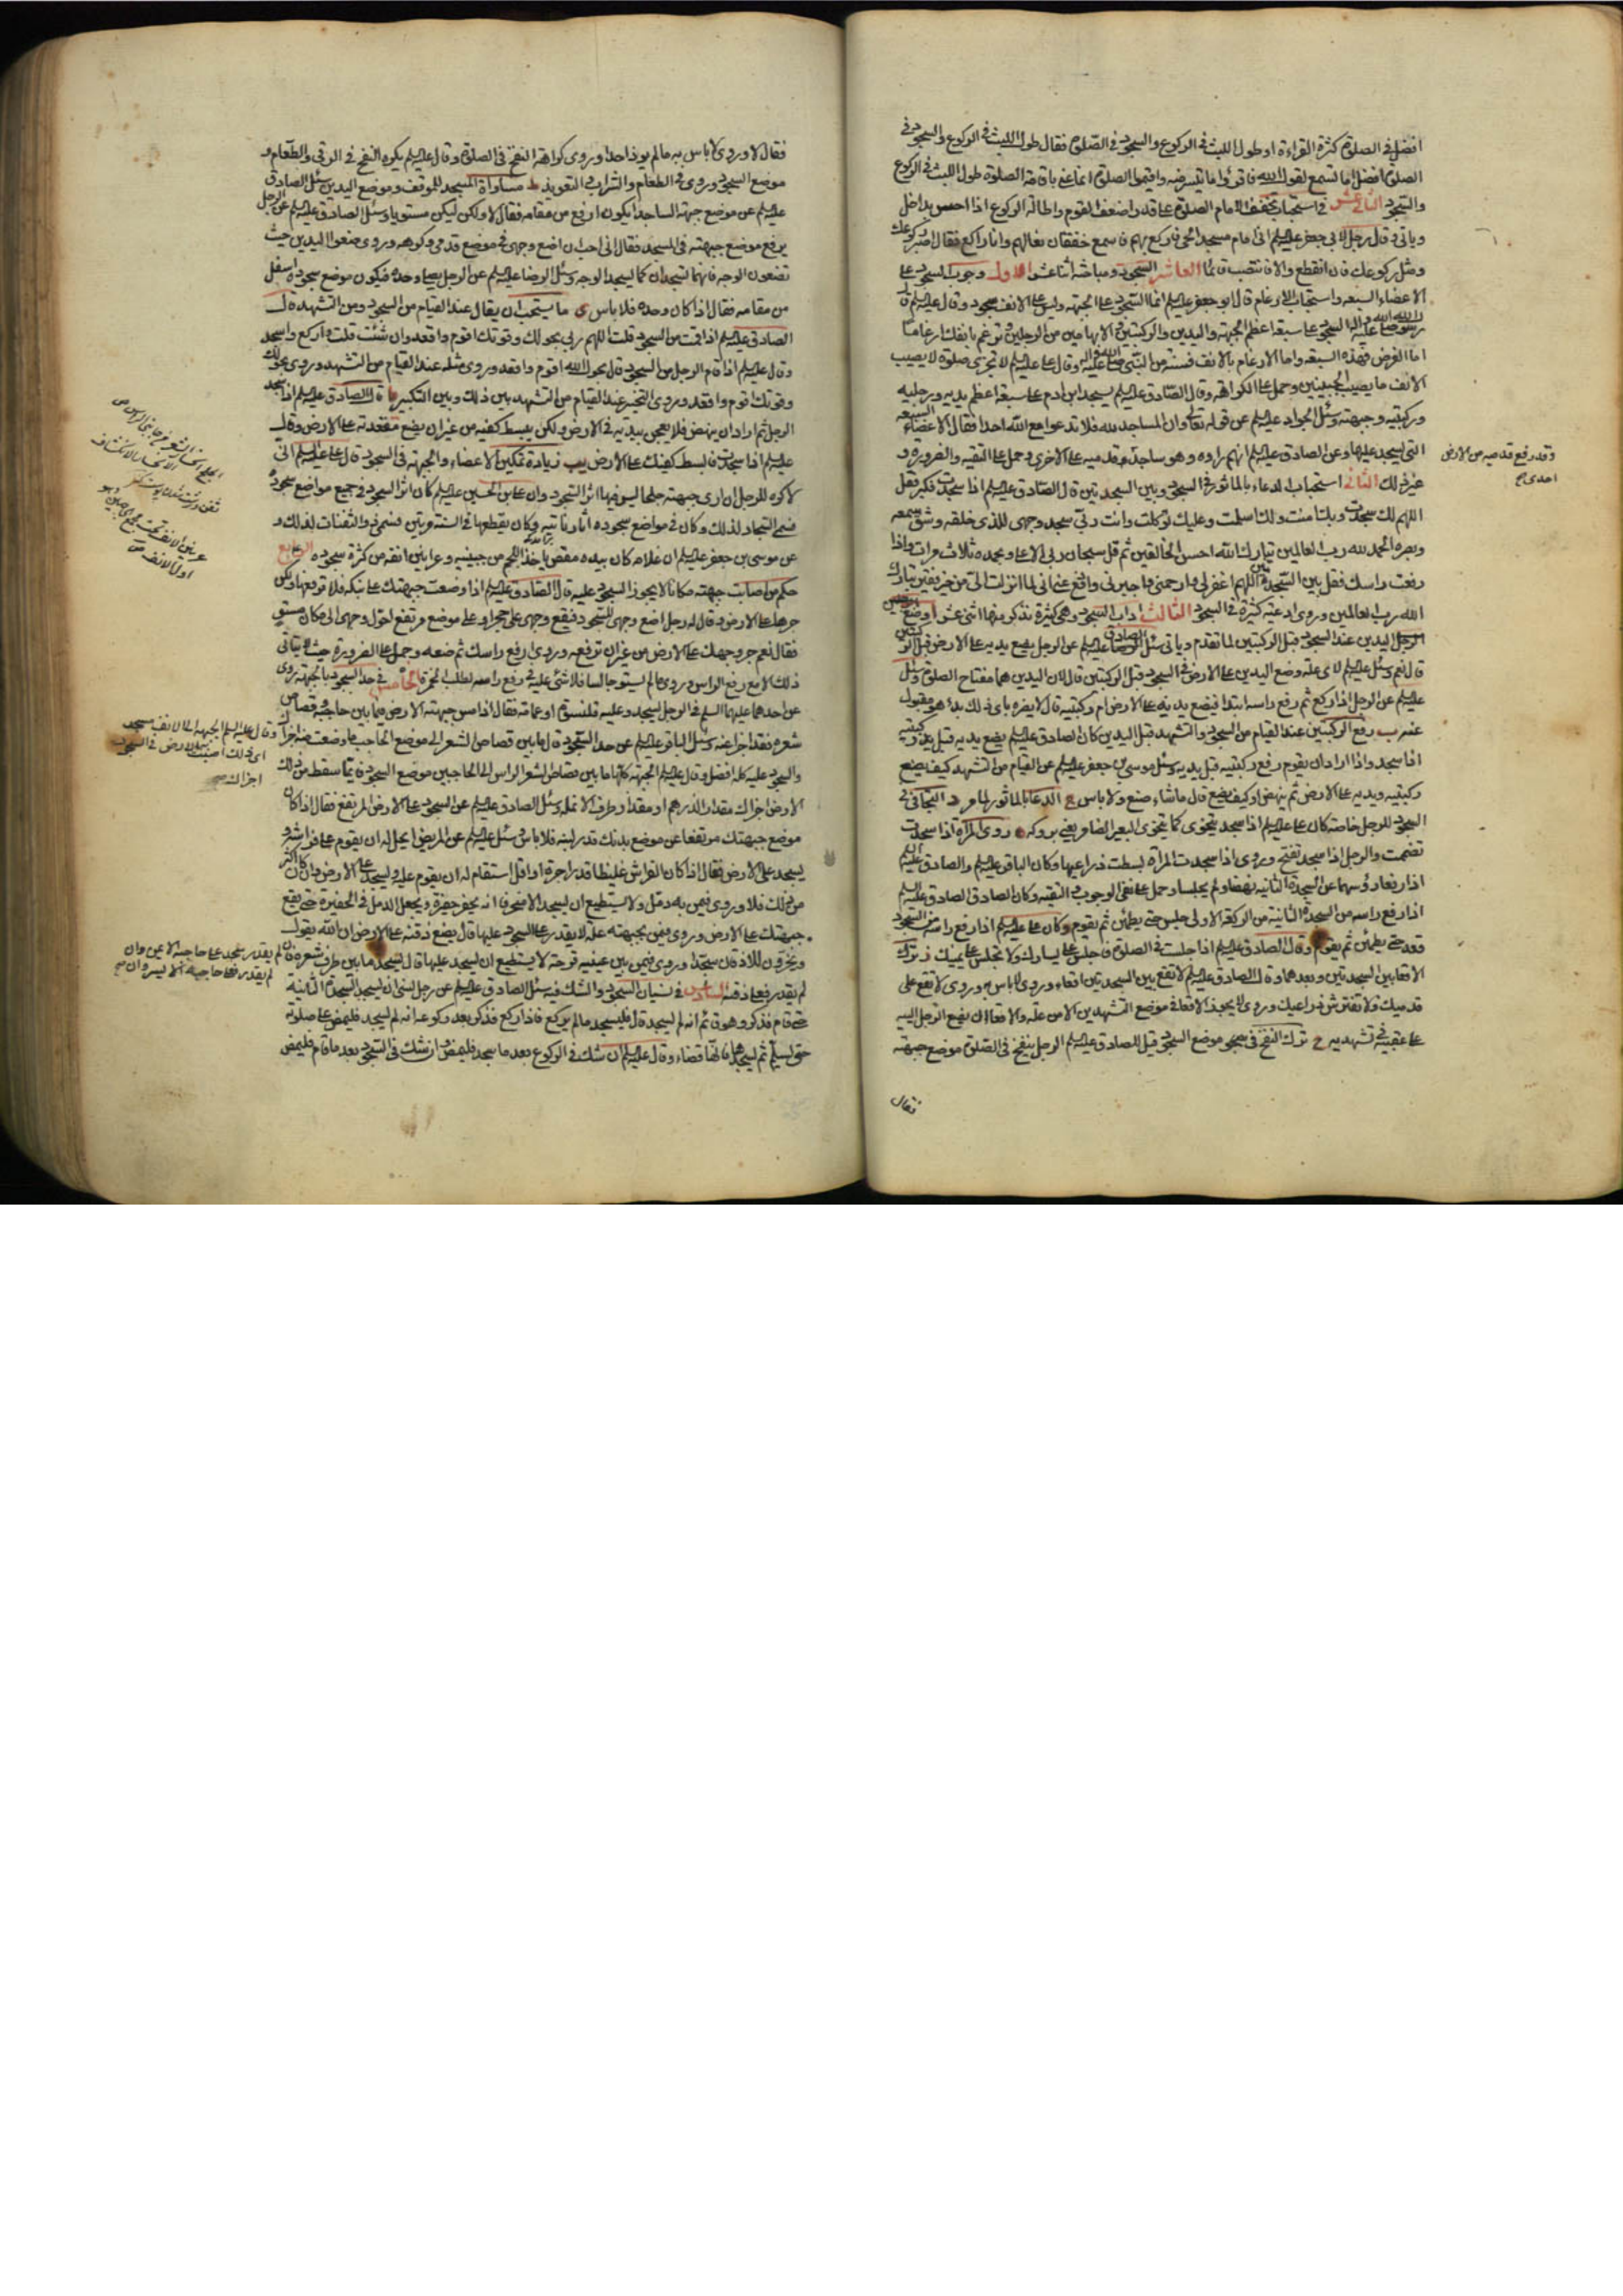 افضل في الصلوة كثرة القراءة او طول اللبث في الركوع والسجود في الصلوة فقال طول اللبث في الركوع والسجود في
الصلوة افضل اما تسمع لقول الله فاقرؤا ما تيسر منه واقيموا الصلوة انما عني باقامة الصلوة طول اللبث في الركوع
والسجود الثاني عشر في استحباب تخفيف الامام الصلوة على قدر اضعف القوم واطالة الركوع اذا احس بداخل
وياتي وقال رجل لابي جعفر عليه السلم اني امام مسجد الحي فاركع بهم فاسمع خفقان نعالهم وانا راكع فقال اصبر ركوعك
ومثل ركوعك فان انقطع والا فانتصب قائما العاشر السجود ومباحثه اثنا عشر الاول وجوب السجود على
الاعضاء السبعة واستحباب الارغام قال ابو جعفر عليه السلم انما السجود على الجبهة وليس على الانف سجود وقال عليه السلم قال
رسول الله صلى الله عليه وآله السجود على سبعة اعظم الجبهة واليدين والركبتين والابهامين من الرجلين وترغم بانفك ارغاما
اما الفرض فهذه السبعة واما الارغام بالانف فسنة من النبي صلى الله عليه وآله وقال علي عليه السلم لا تجزي صلوة لا يصيب
الانف ما يصيب الجبينين وحمل على الكراهة وقال الصادق عليه السلم يسجد ابن ادم على سبعة اعظم يديه ورجليه
وركبتيه وجبهته وسئل الجواد عليه السلم عن قوله تعالى وان المساجد لله فلا تدعوا مع الله احدا فقال الاعضاء السبعة
التي يسجد عليها وعن الصادق عليه السلم انهم راوه وهو ساجد قدميه على الاخرى وحمل على التقية والضرورة و
وقد رفع قدميه من الارض
احدى صح
غير ذلك الثاني استحباب الدعاء بالماثور في السجود وبين السجدتين قال الصادق عليه السلم اذا سجدت فكبر فقل
اللهم لك سجدت وبك امنت ولك اسلمت وعليك توكلت وانت ربي سجد وجهي للذي خلقه وشق سمعه
وبصره الحمد لله رب العالمين تبارك الله احسن الخالقين ثم قل سبحان ربي الاعلى وبحمده ثلاث مرات واذا
رفعت راسك فقل بين السجدتين اللهم اغفر لي وارحمني واجبرني وادفع عني اني لما انزلت الي من خير فقير تبارك
الله رب العالمين وروى ادعية كثيرة في السجود الثالث اداب السجود وهي كثيرة نذكر منها اثني عشر ا وضع
الرجل اليدين عند السجود قبل الركبتين لما تقدم وياتي سئل الصادق عليه السلم عن الرجل يضع يديه على الارض قبل الركبتين
قال نعم وسئل عليه السلم لاي علة وضع اليدين على الارض في السجود قبل الركبتين قال لان اليدين هما مفتاح الصلوة وسئل
عليه السلم عن الرجل اذا ركع ثم رفع راسه ابتدا فيضع يديه على الارض ام ركبتيه قال لا يضره باي ذلك بدا هو مقبول
عنه ب رفع الركبتين عند القيام من السجود والتشهد قبل اليدين كان الصادق عليه السلم يضع يديه قبل ركبتيه
اذا سجد واذا اراد ان يقوم رفع ركبتيه قبل يديه وسئل موسى بن جعفر عليه السلم عن القيام من التشهد كيف يضع
ركبتيه ويديه على الارض ثم ينهض او كيف يصنع قال ما شاء صنع ولا باس ج الدعاء بالماثور لما مر د التجافي في
السجود للرجل خاصة كان علي عليه السلم اذا سجد يتخوى كما يتخوى البعير الضامر يعني بروكه ه روي المراة اذا سجدت
تضممت والرجل اذا سجد تفتح وروى اذا سجدت المراة بسطت ذراعيها وكان الباقر عليه السلم والصادق عليه السلم
اذا رفعا رؤسهما عن السجدة الثانية نهضا ولم يجلسا وحمل على نفي الوجوب والتقية وكان الصادق عليه السلم
اذا رفع راسه من السجدة الثانية من الركعة الاولى جلس حتى يطمئن ثم يقوم وكان علي عليه السلم اذا رفع راسه من السجود
قعد حتى يطمئن ثم يقوم وقال الصادق عليه السلم اذا جلست في الصلوة فاجلس على يسارك ولا تجلس على يمينك ز ترك
الاقعاء بين السجدتين وبعدهما وقال الصادق عليه السلم لا تقع بين السجدتين اقعاء وروى لا باس به وروى لا تقع على
قدميك ولا تفترش ذراعيك وروى لا يجوز الاقعاء في موضع التشهدين الا من علة والاقعاء ان يضع الرجل اليتيه
على عقبيه في تشهديه ح ترك النفخ في موضع السجود قيل للصادق عليه السلم الرجل ينفخ في الصلوة موضع جبهته
فقال
فقال لا وروى لا باس به ما لم يوذ احدا وروى كراهة النفخ في الصلوة وقال عليه السلم يكره النفخ في الرقى والطعام و
موضع السجود وروى في الطعام والشراب والتعويذ ط مساواة المسجد للموقف وموضع اليدين سئل الصادق
عليه السلم عن موضع جبهة الساجد ايكون ارفع من مقامه فقال لا ولكن ليكن مستويا وسئل الصادق عليه السلم عن الرجل
يرفع موضع جبهته في المسجد فقال اني احب ان اضع وجهي في موضع قدمي وكرهه وروى ضعوا اليدين حيث
تضعون الوجه فانهما تسجدان كما يسجد الوجه وسئل الرضا عليه السلم عن الرجل يصلي وحده فيكون موضع سجوده اسفل
من مقامه فقال اذا كان وحده فلا باس ى ما يستحب ان يقال عند القيام من السجود ومن التشهد قال
الصادق عليه السلم اذا قمت من السجود قلت اللهم ربي بحولك وقوتك اقوم واقعد وان شئت قلت واركع واسجد
وقال عليه السلم اذا قام الرجل من السجود قال بحول الله اقوم واقعد وروى مثله عند القيام من التشهد وروى بحولك
وقوتك اقوم واقعد وروى التخيير عند القيام من التشهد بين ذلك وبين التكبير يا قال الصادق عليه السلم اذا سجد
الرجل ثم اراد ان ينهض فلا يعجن بيديه في الارض ولكن يبسط كفيه من غير ان يضع مقعدته على الارض وقال
عليه السلم اذا سجدت فابسط كفيك على الارض يب زيادة تمكين الاعضاء والجبهة في السجود قال علي عليه السلم اني
لاكره للرجل ان ارى جبهته جلحا ليس فيها اثر السجود وان علي بن الحسين عليه السلم كان اثر السجود في جميع مواضع سجوده
فسمي السجاد لذلك وكان في مواضع سجوده اثار ناتية وكان يقطعها في السنة مرتين فسمي ذو الثفنات لذلك و
عن موسى بن جعفر عليه السلم ان غلامه كان بيده مقص ياخذ اللحم من جبينه وعرانين انفه من كثرة سجوده الرابع
حكم من اصابت جبهته مكانا لا يجوز السجود عليه قال الصادق عليه السلم اذا وضعت جبهتك على نبكة فلا ترفعها ولكن
جرها على الارض وقال له رجل اضع وجهي للسجود فيقع وجهي على حجر او على موضع مرتفع احول وجهي الى مكان مستو
فقال نعم جر وجهك على الارض من غير ان ترفعه وروى ارفع راسك ثم ضعه وحمل على الضرورة حيث لا يتاتى
ذلك الا مع رفع الراس وروى ما لم يستو جالسا فلا شئ عليه في رفع راسه لطلب الخمرة الخامس في حد السجود بالجبهة روى
عن احدهما عليهما السلم في الرجل يسجد وعليه قلنسوة او عمامة فقال اذا مس جبهته الارض فيما بين حاجبه وقصاص
شعره فقد اجزا عنه وسئل الباقر عليه السلم عن حد السجود قال ما بين قصاص الشعر الى موضع الحاجب ما وضعت منه اجزاك
والسجود عليه كله افضل وقال عليه السلم الجبهة كلها ما بين قصاص شعر الراس الى الحاجبين موضع السجود فايما سقط من ذلك
الارض اجزاك مقدار الدرهم او مقدار طرف الانملة وسئل الصادق عليه السلم عن السجود على الارض المرتفع فقال اذا كان
موضع جبهتك مرتفعا عن موضع بدنك قدر لبنة فلا باس وسئل عليه السلم عن المريض ايحل له ان يقوم على فراشه و
يسجد على الارض فقال اذا كان الفراش غليظا قدر اجرة او اقل استقام له ان يقوم عليه ويسجد على الارض وان كان اكثر
من ذلك فلا وروى فيمن به دمل ولا يستطيع ان يسجد الا منحرفا انه يحفر حفيرة ويجعل الدمل في الحفيرة حتى يقع
جبهتك على الارض وروى فيمن بجبهته علة لا يقدر على السجود عليها قال يضع ذقنه على الارض ان الله يقول
ويخرون للاذقان سجدا وروى فيمن بين عينيه قرحة لا يستطيع ان يسجد عليها قال يسجد ما بين طرف شعره فان
لم يقدر فعلى ذقنه السادس في نسيان السجود والشك فيه سئل الصادق عليه السلم عن رجل نسي ان يسجد السجدة الثانية
حتى قام فذكر وهو قائم انه لم يسجد قال فليسجد ما لم يركع فاذا ركع فذكر بعد ركوعه انه لم يسجد فليمض على صلوته
حتى يسلم ثم يسجدها فانها قضاء وقال عليه السلم ان شك في الركوع بعد ما سجد فليمض وان شك في السجود بعد ما قام فليمض
وقال عليه السلم الجبهة الى الانف مسجد
اي ذلك اصبت به الارض في السجود
اجزاك صح
لم يقدر سجد على حاجبه الايمن وان
لم يقدر فعلى حاجبه الايسر فان صح